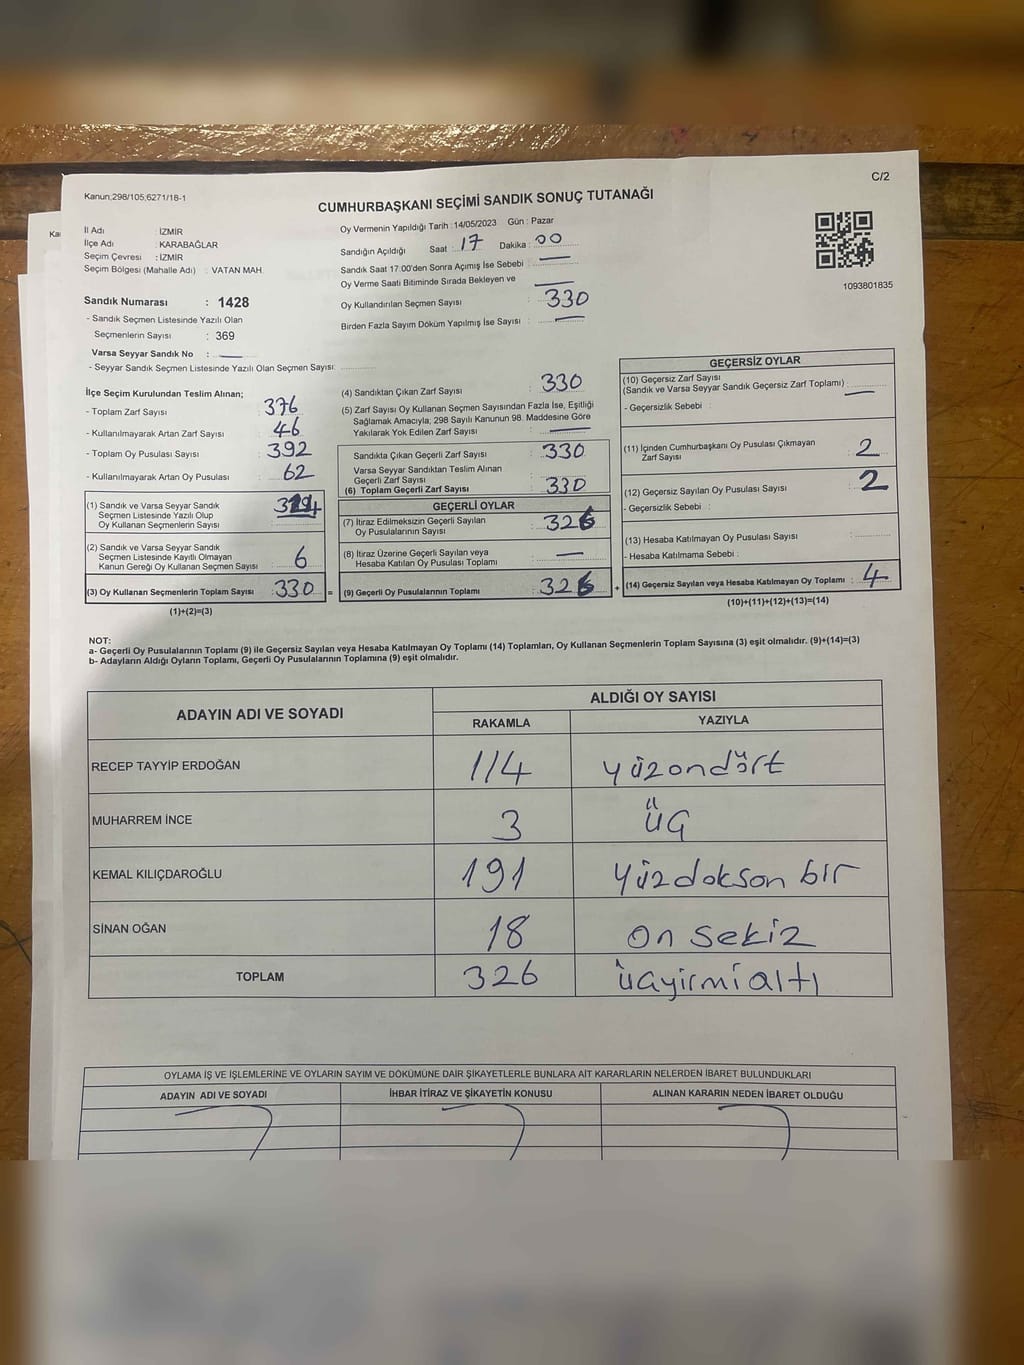 C/2
Kanun;298/105,6271/18-1
CUMHURBAŞKANI SEÇİMİ SANDIK SONUÇ TUTANAĞI
Ka
İl Adı : İZMİR
İlçe Adı : KARABAĞLAR
Seçim Çevresi : İZMİR
Seçim Bölgesi (Mahalle Adı) : VATAN MAH.
Sandık Numarası : 1428
- Sandık Seçmen Listesinde Yazılı Olan
Seçmenlerin Sayısı : 369
Varsa Seyyar Sandık No :
- Seyyar Sandık Seçmen Listesinde Yazılı Olan Seçmen Sayısı:
Oy Vermenin Yapıldığı Tarih : 14/05/2023 Gün : Pazar
Sandığın Açıldığı Saat : 17 Dakika : 00
Sandık Saat 17:00'den Sonra Açımış İse Sebebi :
Oy Verme Saati Bitiminde Sırada Bekleyen ve
Oy Kullandırılan Seçmen Sayısı : 330
Birden Fazla Sayım Döküm Yapılmış İse Sayısı :
1093801835
İlçe Seçim Kurulundan Teslim Alınan;
- Toplam Zarf Sayısı : 376
- Kullanılmayarak Artan Zarf Sayısı : 46
- Toplam Oy Pusulası Sayısı : 392
- Kullanılmayarak Artan Oy Pusulası : 62
(1) Sandık ve Varsa Seyyar Sandık
Seçmen Listesinde Yazılı Olup
Oy Kullanan Seçmenlerin Sayısı
(2) Sandık ve Varsa Seyyar Sandık
Seçmen Listesinde Kayıtlı Olmayan
Kanun Gereği Oy Kullanan Seçmen Sayısı : 6
(3) Oy Kullanan Seçmenlerin Toplam Sayısı : 330 =
(1)+(2)=(3)
(4) Sandıktan Çıkan Zarf Sayısı : 330
(5) Zarf Sayısı Oy Kullanan Seçmen Sayısından Fazla İse, Eşitliği
Sağlamak Amacıyla; 298 Sayılı Kanunun 98. Maddesine Göre
Yakılarak Yok Edilen Zarf Sayısı :
Sandıkta Çıkan Geçerli Zarf Sayısı : 330
Varsa Seyyar Sandıktan Teslim Alınan
Geçerli Zarf Sayısı :
(6) Toplam Geçerli Zarf Sayısı : 330
GEÇERLİ OYLAR
(7) İtiraz Edilmeksizin Geçerli Sayılan
Oy Pusulalarının Sayısı : 326
(8) İtiraz Üzerine Geçerli Sayılan veya
Hesaba Katılan Oy Pusulası Toplamı :
(9) Geçerli Oy Pusulalarının Toplamı : 326 +
GEÇERSİZ OYLAR
(10) Geçersiz Zarf Sayısı
(Sandık ve Varsa Seyyar Sandık Geçersiz Zarf Toplamı) :
- Geçersizlik Sebebi :
(11) İçinden Cumhurbaşkanı Oy Pusulası Çıkmayan
Zarf Sayısı : 2
(12) Geçersiz Sayılan Oy Pusulası Sayısı : 2
- Geçersizlik Sebebi :
(13) Hesaba Katılmayan Oy Pusulası Sayısı :
- Hesaba Katılmama Sebebi :
(14) Geçersiz Sayılan veya Hesaba Katılmayan Oy Toplamı : 4
(10)+(11)+(12)+(13)=(14)
NOT:
a- Geçerli Oy Pusulalarının Toplamı (9) ile Geçersiz Sayılan veya Hesaba Katılmayan Oy Toplamı (14) Toplamları, Oy Kullanan Seçmenlerin Toplam Sayısına (3) eşit olmalıdır. (9)+(14)=(3)
b- Adayların Aldığı Oyların Toplamı, Geçerli Oy Pusulalarının Toplamına (9) eşit olmalıdır.
ADAYIN ADI VE SOYADI
ALDIĞI OY SAYISI
RAKAMLA YAZIYLA
RECEP TAYYİP ERDOĞAN 114 yüzondört
MUHARREM İNCE 3 üç
KEMAL KILIÇDAROĞLU 191 Yüzdokson bir
SİNAN OĞAN 18 on sekiz
TOPLAM 326 üçyirmialtı
OYLAMA İŞ VE İŞLEMLERİNE VE OYLARIN SAYIM VE DÖKÜMÜNE DAİR ŞİKAYETLERLE BUNLARA AİT KARARLARIN NELERDEN İBARET BULUNDUKLARI
ADAYIN ADI VE SOYADI İHBAR İTİRAZ VE ŞİKAYETİN KONUSU ALINAN KARARIN NEDEN İBARET OLDUĞU